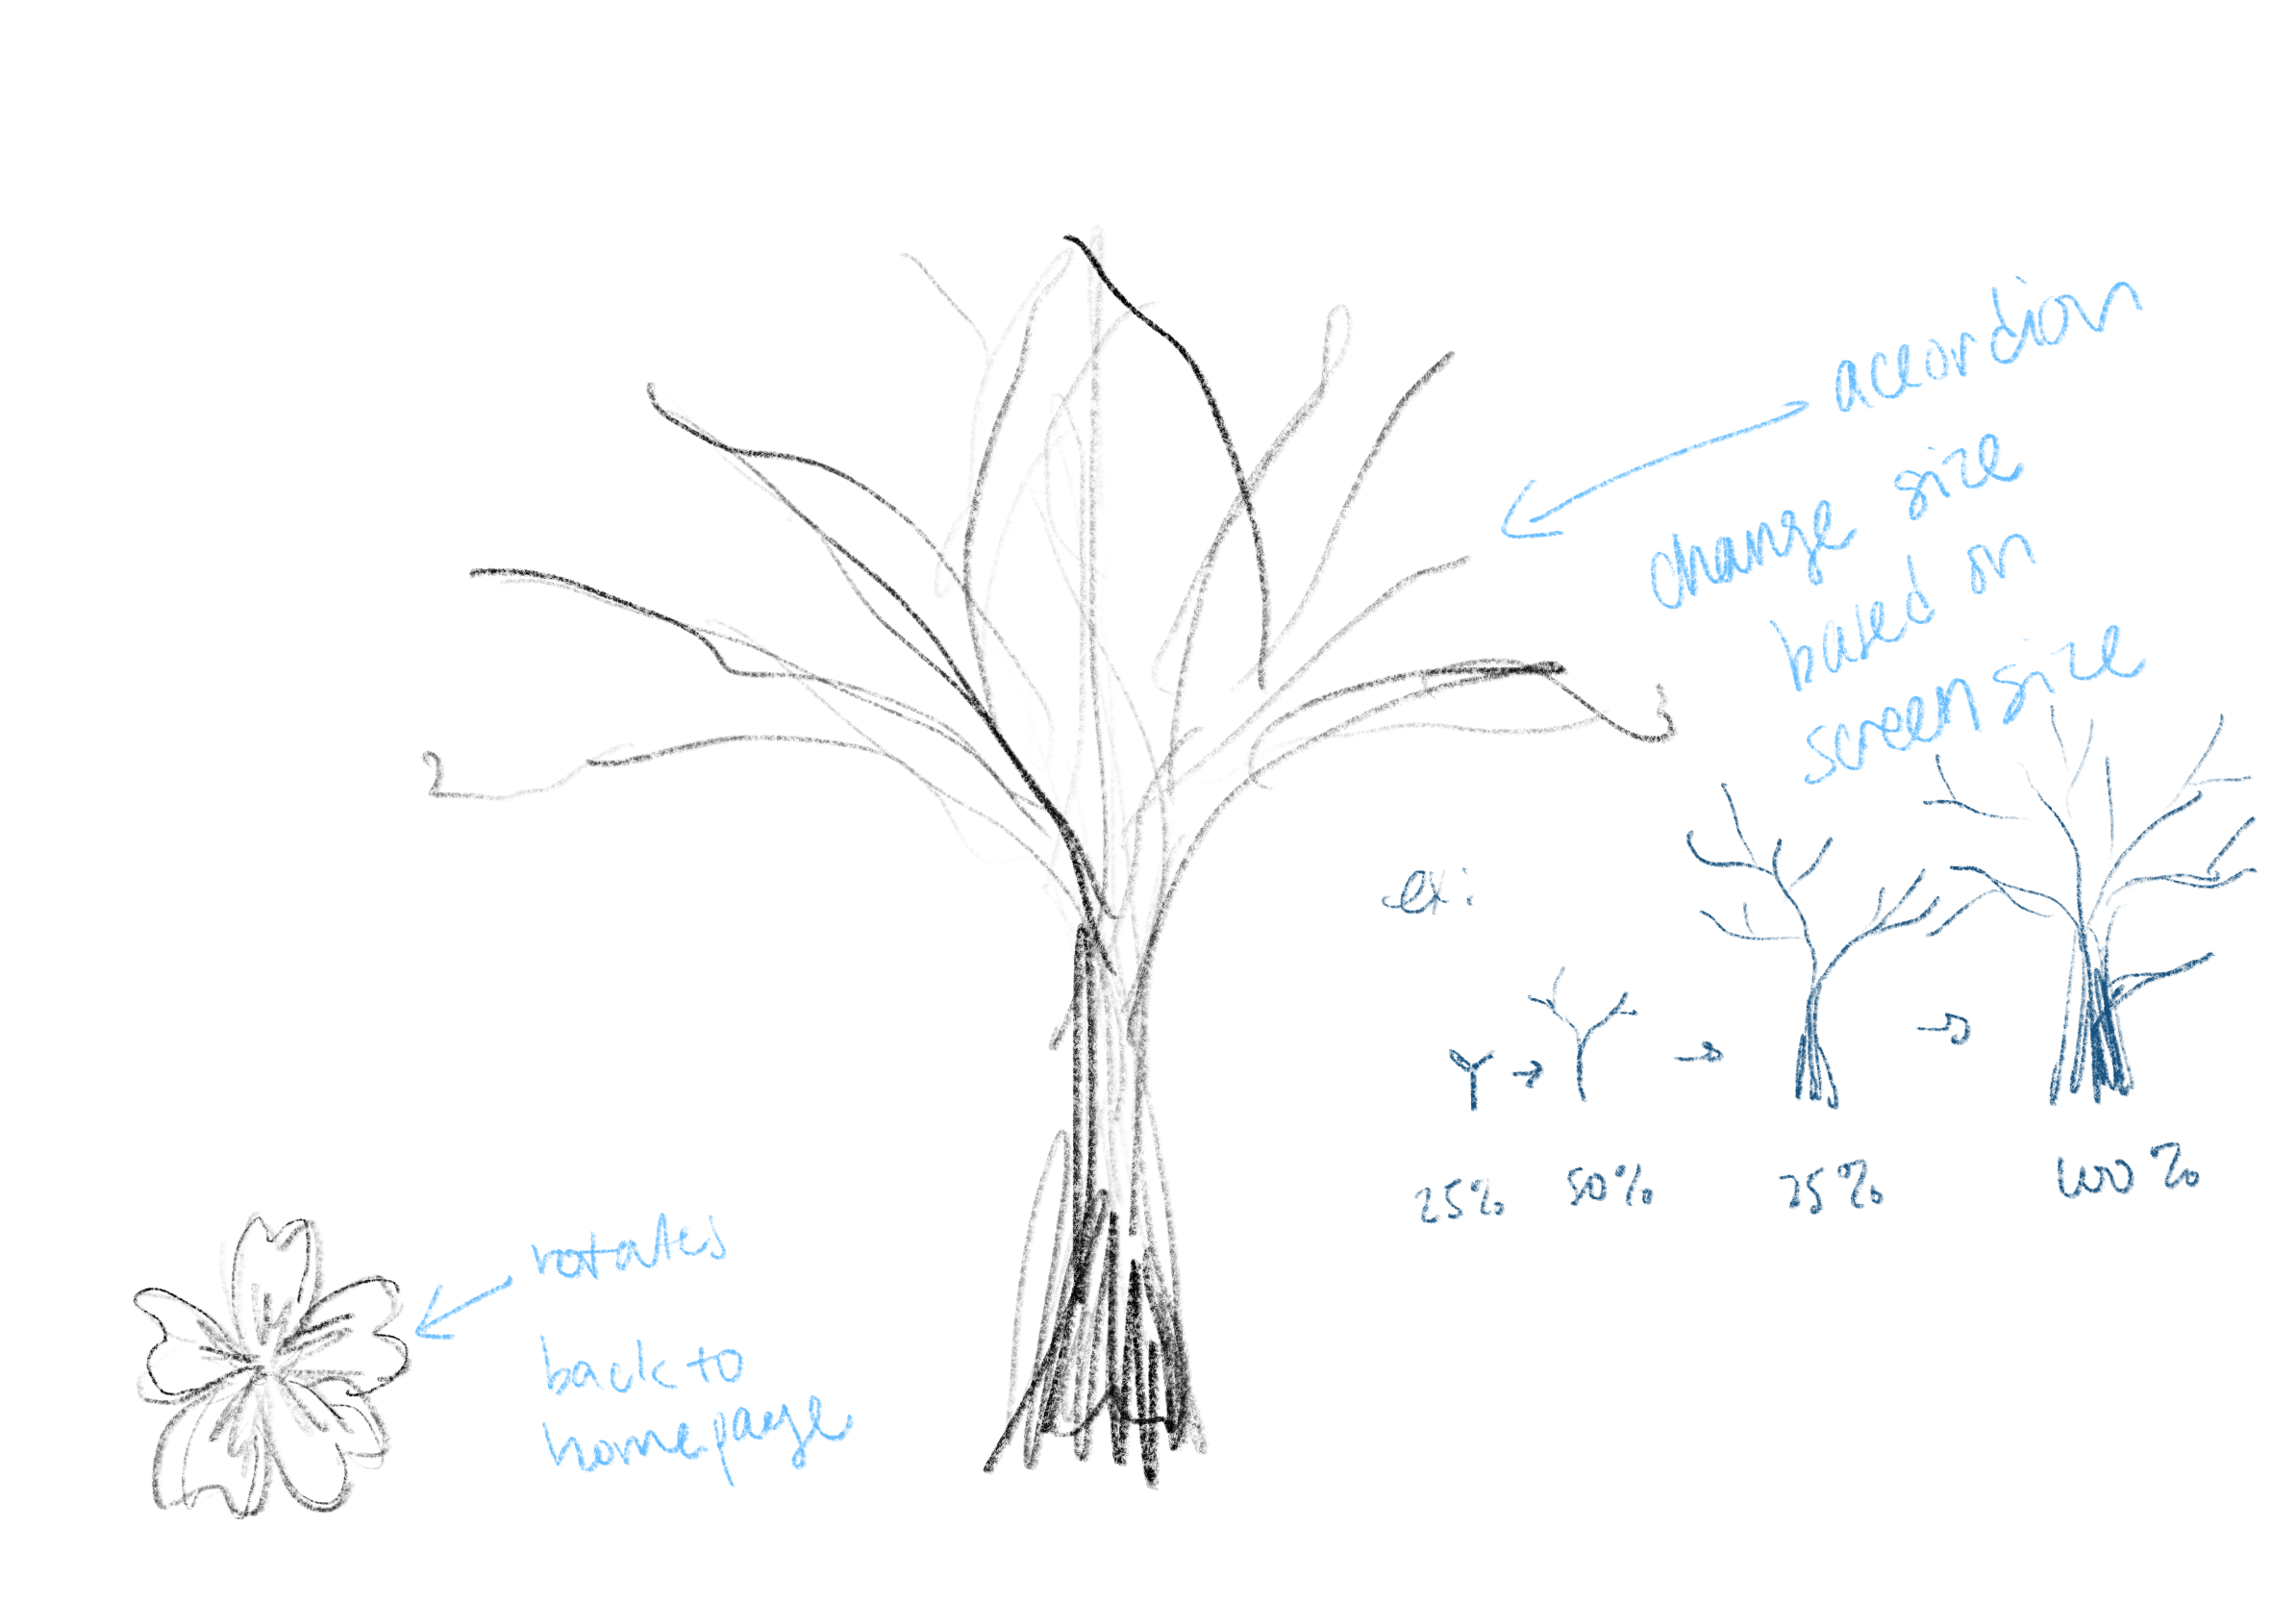 accordion
change size
based on
screen size
ex:
25% 50% 75% 100%
rotates
back to
homepage